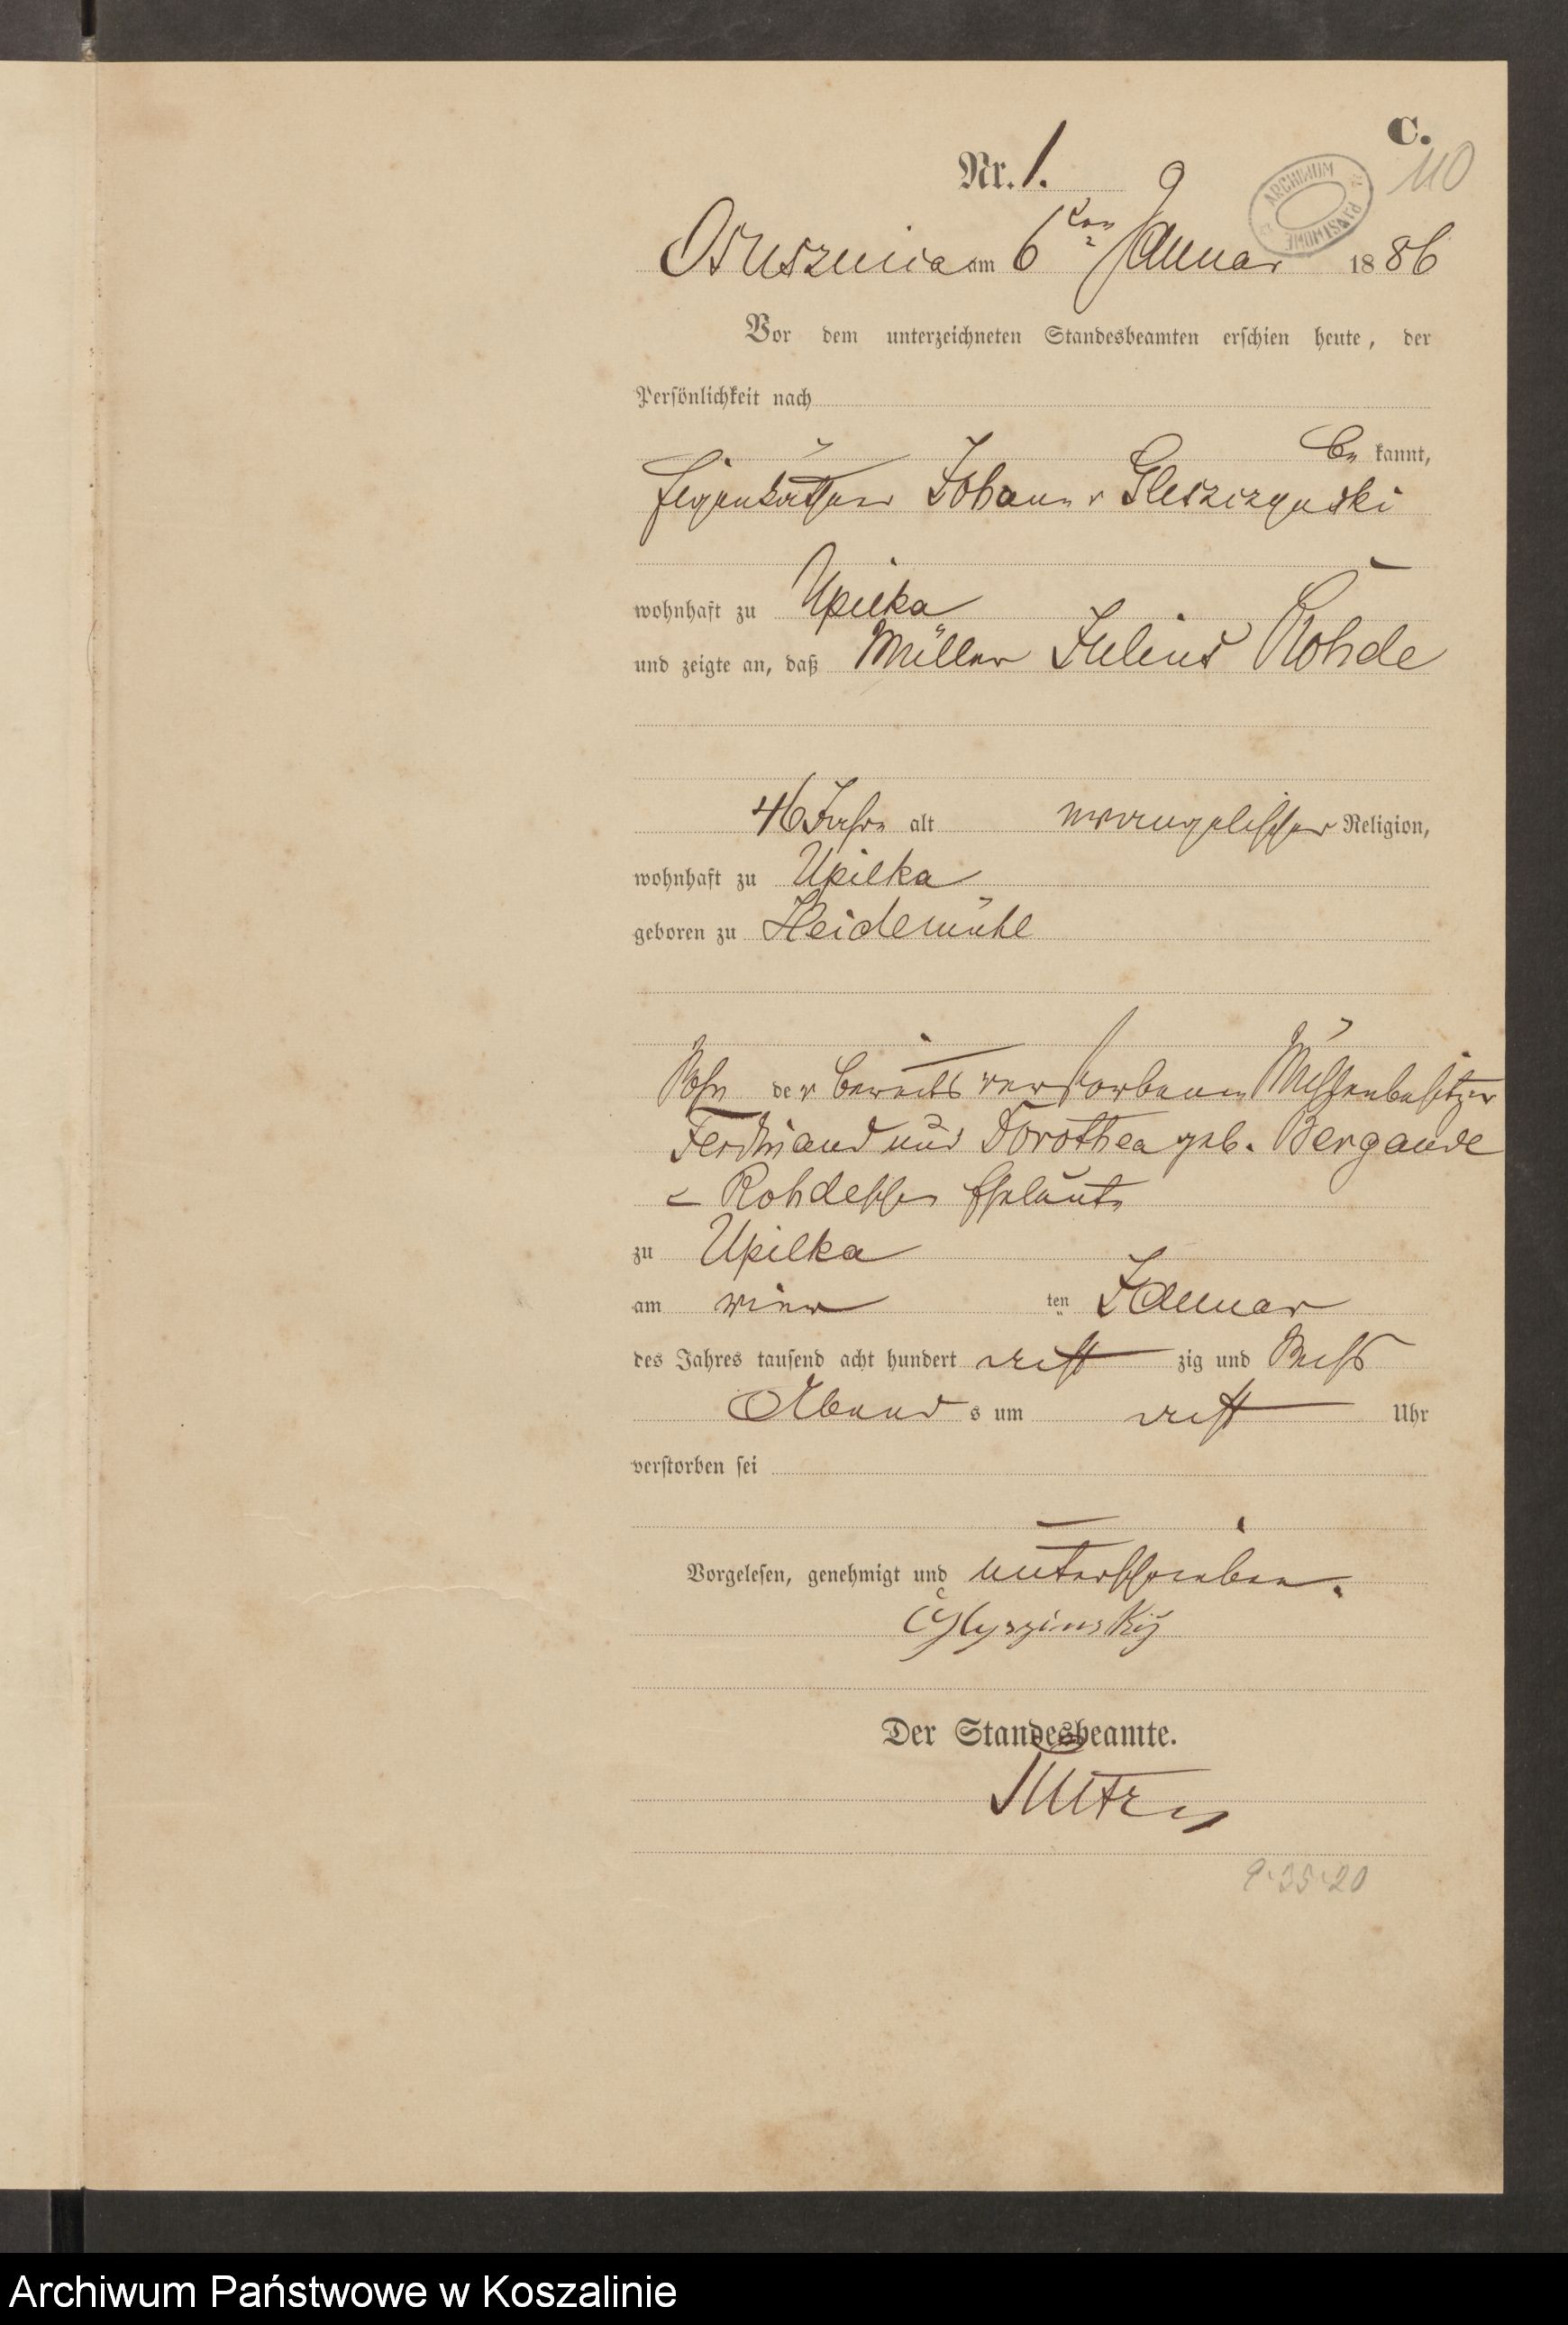 C.
110
Nr. 1.
ARCHIWUM PAŃSTWOWE
Osusznica am 6ten Januar 1886
Vor dem unterzeichneten Standesbeamten erschien heute, der
Persönlichkeit nach
be kannt,
Eigenkäthner Johann Gleszczynski
wohnhaft zu Upilka
und zeigte an, daß Müller Julius Rohde
46 Jahre alt evangelischer Religion,
wohnhaft zu Upilka
geboren zu Heidemühl
Sohn der bereits verstorbenen Mühlenbesitzer
Ferdinand und Dorothea geb. Bergande
- Rohdeschen Eheleute
zu Upilka
am vier ten Januar
des Jahres tausend acht hundert acht zig und sechs
Abend s um acht Uhr
verstorben sei
Vorgelesen, genehmigt und unterschrieben.
Der Standesbeamte.
9.35.20
Archiwum Państwowe w Koszalinie